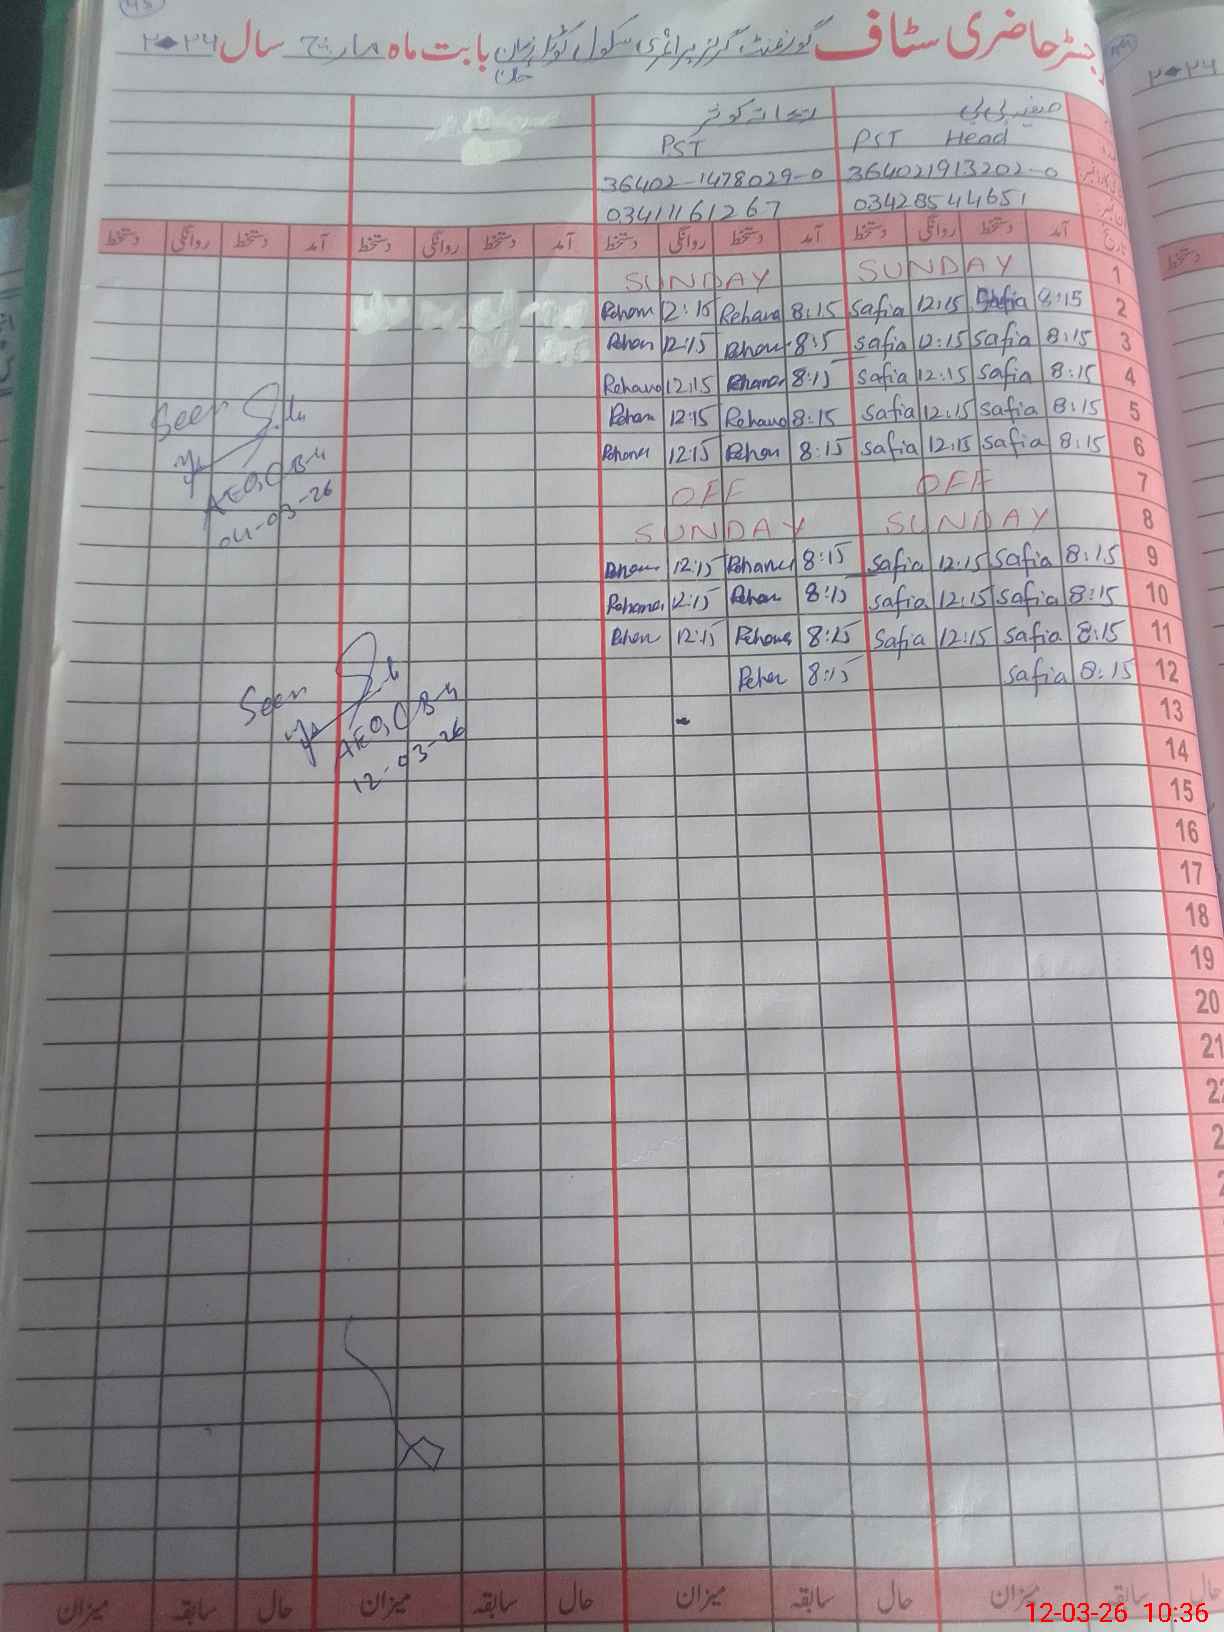 رجسٹر حاضری سٹاف گورنمنٹ گرلز پرائمری سکول کوٹلہ بابت ماہ مارچ سال ۲۰۲۶
۲۰۲۶
صفیہ بی بی ریحانہ کوثر
PST Head PST
364021913202-0 36402-1478029-0
03428544651 03411161267
تاریخ آمد دستخط روانگی دستخط آمد دستخط روانگی دستخط آمد دستخط روانگی دستخط آمد دستخط روانگی دستخط
دستخط
1 SUNDAY SUNDAY
2 8:15 Safia 12:15 Safia 8:15 Rehana 12:15 Rehana
3 8:15 Safia 12:15 Safia 8:15 Rehana 12:15 Rehan
4 8:15 Safia 12:15 Safia 8:15 Rehana 12:15 Rehana
5 8:15 Safia 12:15 Safia 8:15 Rehana 12:15 Rehan
6 8:15 Safia 12:15 Safia 8:15 Rehan 12:15 Rehana
7 OFF OFF
8 SUNDAY SUNDAY
9 8:15 Safia 12:15 Safia 8:15 Rehana 12:15 Rehana
10 8:15 Safia 12:15 Safia 8:15 Rehan 12:15 Rehana
11 8:15 Safia 12:15 Safia 8:15 Rehana 12:15 Rehan
12 8:15 Safia 8:15 Rehan
13
14
15
16
17
18
19
20
21
22
Seen
AEO, CB-4
04-03-26
Seen
AEO, CB-4
12-03-26
حال سابقہ میزان حال سابقہ میزان حال سابقہ میزان حال سابقہ میزان
12-03-26 10:36